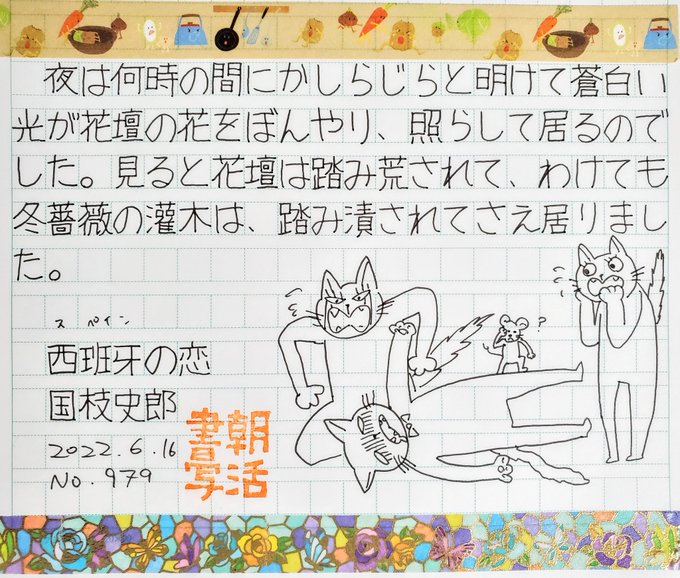 夜は何時の間にかしらじらと明けて蒼白い
光が花壇の花をぼんやり、照らして居るので
した。見ると花壇は踏み荒されて、わけても
冬薔薇の灌木は、踏み潰されてさえ居りまし
た。
スペイン
西班牙の恋
国枝史郎
2022.6.16
No.979
朝活
書写
?